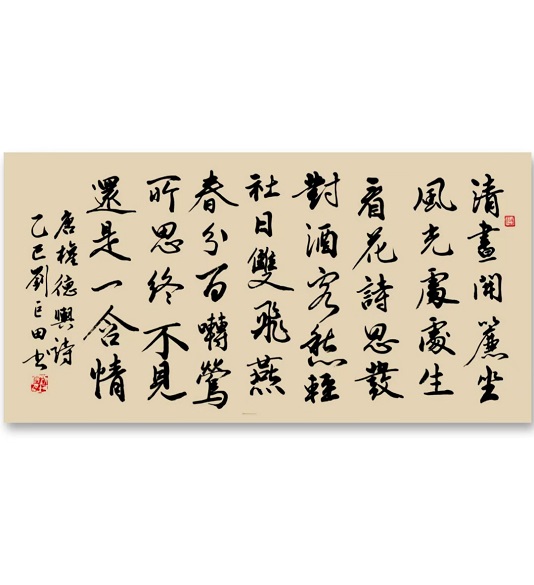 清晝開簾坐
風光處處生
看花詩思發
對酒客愁輕
社日雙飛燕
春分百囀鶯
所思終不見
還是一含情
唐權德輿詩
乙巳劉巨田书